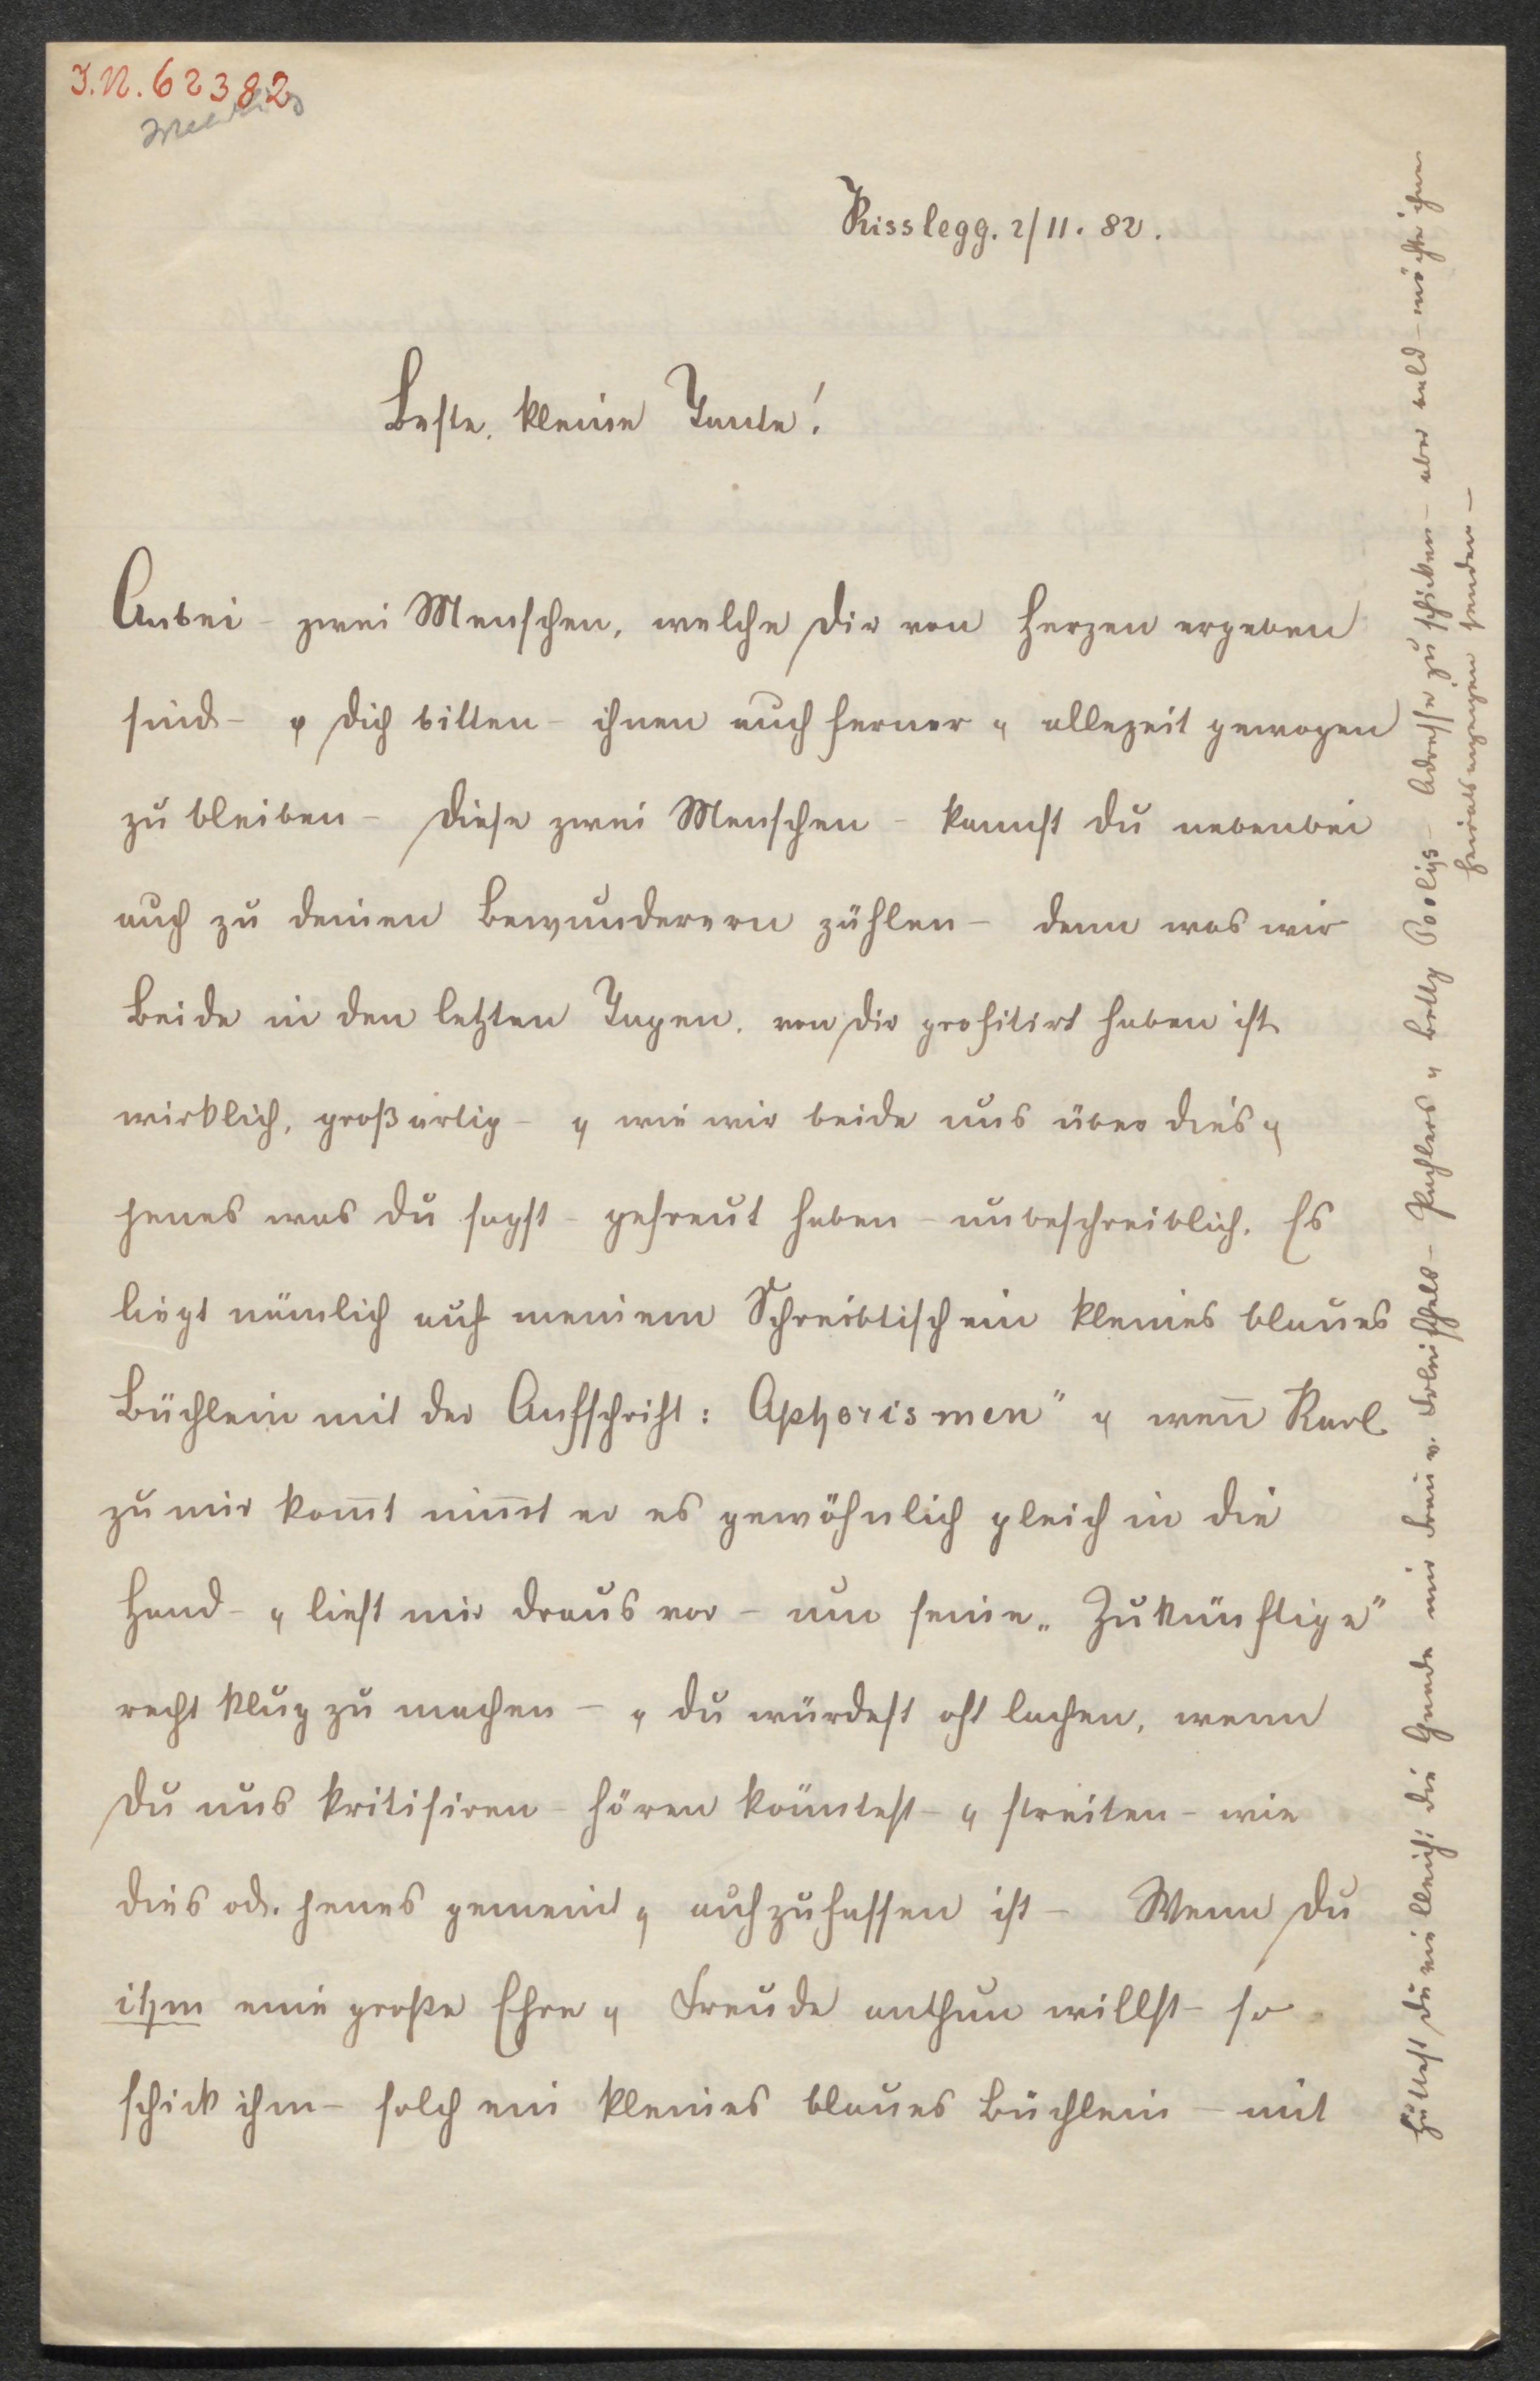 I.N. 62382
Kisslegg. 2/11. 82.
Beste, kleine Tante!
Anbei - zwei Menschen, welche Dir von Herzen ergeben
sind - & Dich bitten - ihnen auch ferner & allezeit gewogen
zu bleiben - Diese zwei Menschen - kannst du nebenbei
auch zu deinen Bewunderern zählen - denn was wir
Beide in den letzten Tagen, von Dir profitirt haben ist
wirklich, großartig - & wie wir beide uns über dies &
jenes was du sagst - gefreut haben - unbeschreiblich. Es
liegt nämlich auf meinem Schreibtisch ein kleines blaues
Büchlein mit der Aufschrift: Aphorismen" & weñ Karl
zu mir kom̃t nim̃t er es gewöhnlich gleich in die
Hand - & liest mir draus vor - um seine „Zukünftige"
recht klug zu machen - & du würdest oft lachen, wenn
Du uns kritisiren - hören könntest - & streiten - wie
dies od. jenes gemeint & aufzufassen ist - Wenn Du
ihm eine große Ehre & Freude anthun willst - so
schick ihm - solch ein kleines blaues Büchlein - mit
Hättest Du vielleicht die Gnade mir Frau v. Fleischhels - Pachlers & Betty Paolis - Adresse zu schicken - aber bald - möchte ihnen
Heiratsanzeigen senden -